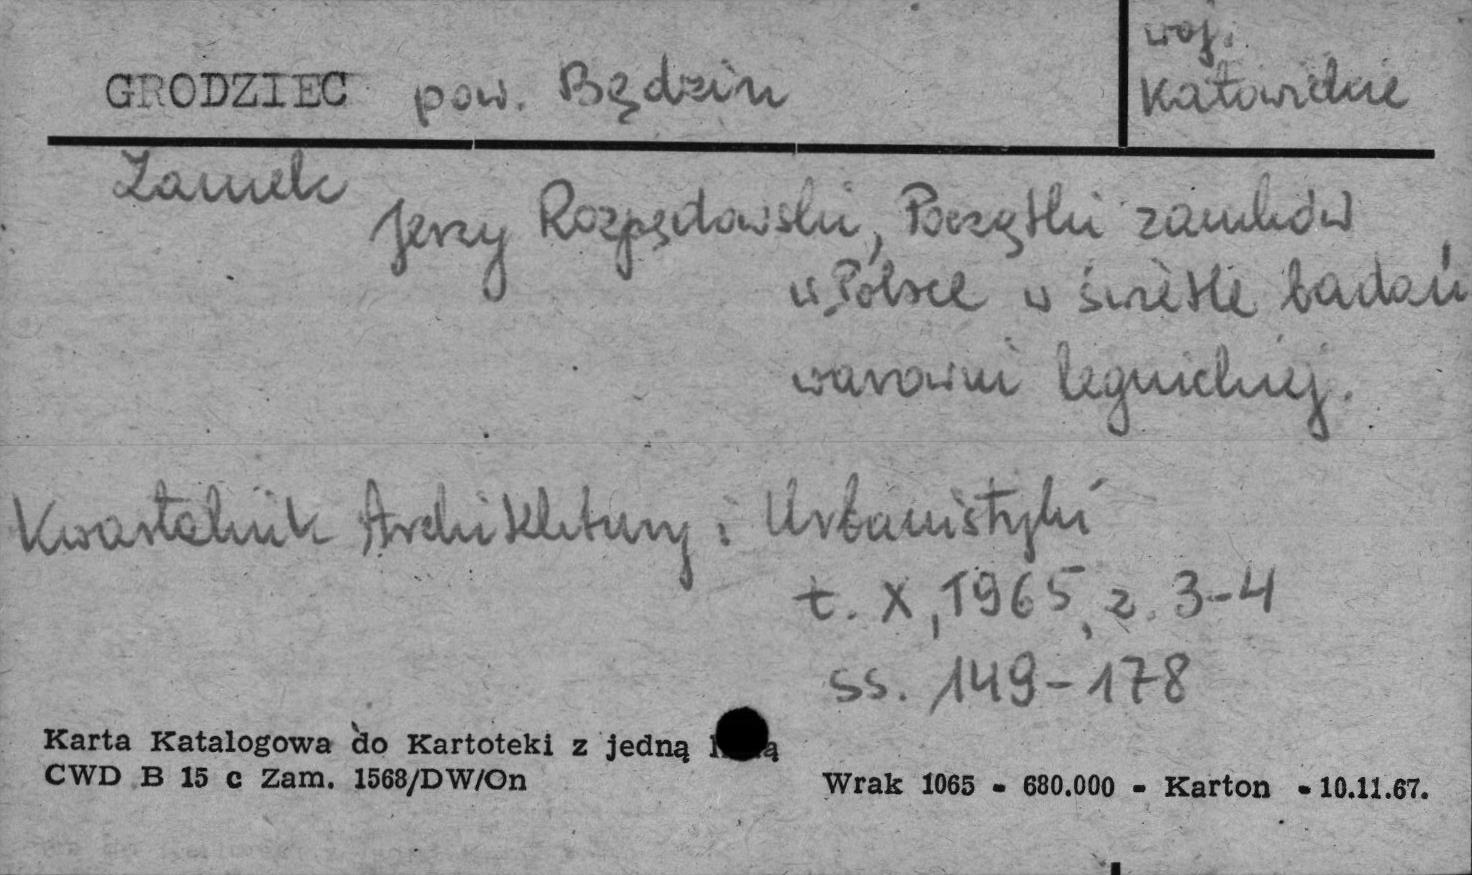 GRODZIEC pow. Będzin
woj.
Katowickie
Zamek
Jerzy Rozpędowski, Początki zamków
w Polsce w świetle badań
warowni legnickiej.
Kwartalnik Architektury i Urbanistyki
t. X, 1965, z. 3-4
ss. 149-178
Karta Katalogowa do Kartoteki z jedną
CWD B 15 c Zam. 1568/DW/On
Wrak 1065 - 680.000 - Karton - 10.11.67.